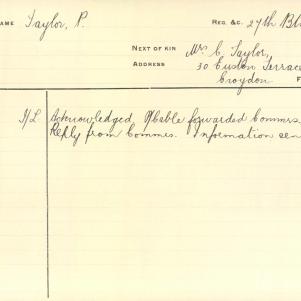 NAME Taylor, P. REG. &c. 27th
NEXT OF KIN Mrs C. Taylor,
ADDRESS 30 Euston Terrace
Croydon
I/L Acknowledged. O/Cable forwarded Commrs.
Reply from Commrs. Information